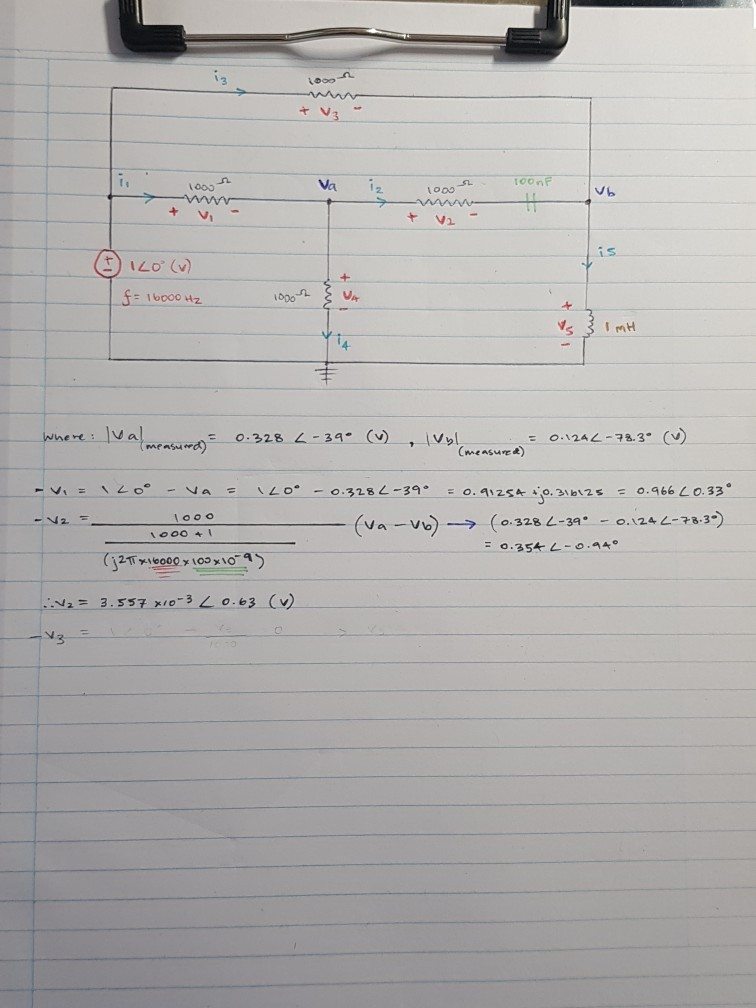 i3 1000Ω
+ V3 -
i1 1000Ω Va i2 1000Ω 100nF Vb
+ V1 - + V2 -
i5
+
-
1∠0° (V)
f = 16000 Hz
1000Ω
+
V4
-
i4
+
V5
-
1 mH
where: |Va|(measured) = 0.328 ∠-39° (V) , |Vb|(measured) = 0.124∠-78.3° (V)
- V1 = 1∠0° - Va = 1∠0° - 0.328∠-39° = 0.91254 + j0.316125 = 0.966∠0.33°
- V2 = 1000 / (1000 + 1 / (j2π×16000×100×10⁻⁹)) (Va - Vb) → (0.328∠-39° - 0.124∠-78.3°)
= 0.354∠-0.94°
∴ V2 = 3.557 ×10⁻³ ∠ 0.63 (V)
- V3 =